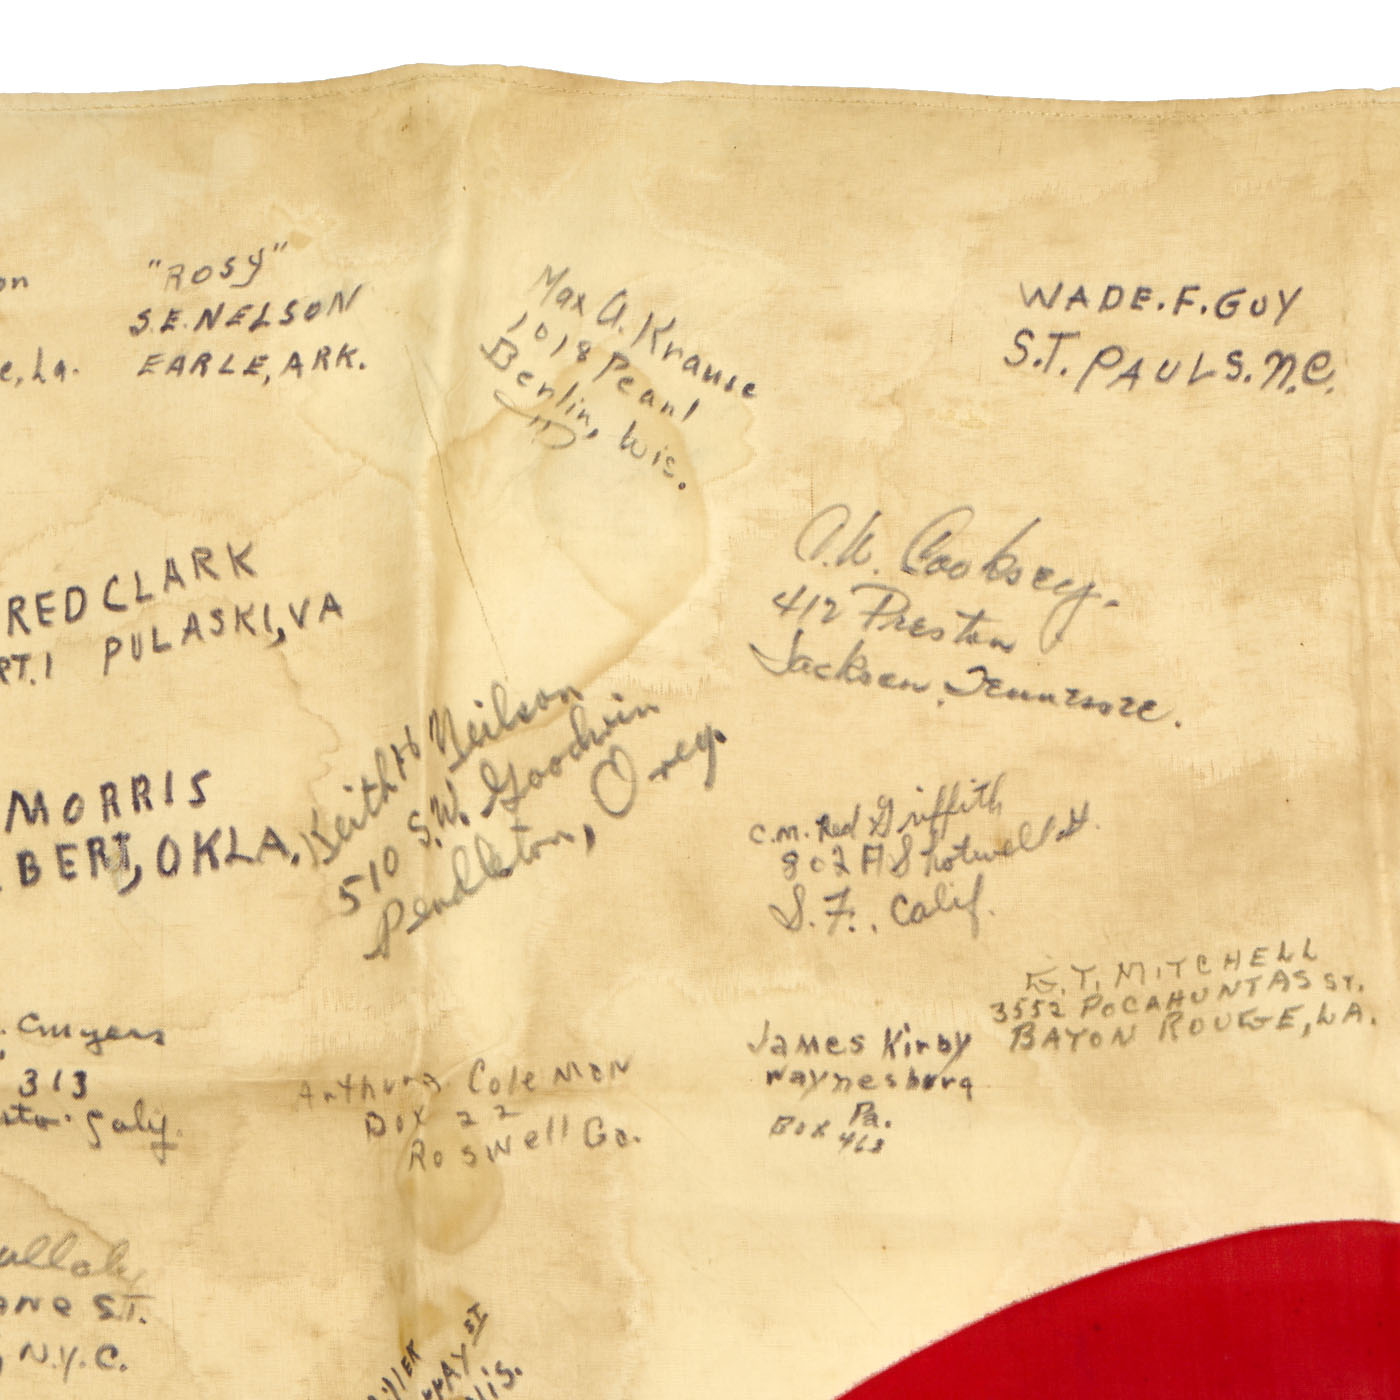 "ROSY"
S.E. NELSON
EARLE, ARK.
on
e, La.
Max A. Krause
1018 Pearl
Berlin, Wis.
WADE.F.GUY
S.T. PAULS. N.C.
RED CLARK
RT.1 PULASKI, VA
Cooksey.
412 Preston
Jackson, Tennessee.
MORRIS
BERT, OKLA.
Keith H Neilson
510 S.W. Goodwin
Pendleton, Oreg.
C.M. Red Griffith
802 A Shotwell St.
S.F., Calif.
E.T. MITCHELL
3552 POCAHUNTAS ST.
BATON ROUGE, LA.
James Kirby
Waynesburg
Pa.
Box 463
313
Arthur Coleman
Box 22
Roswell Ga.
ST.
N.Y.C.
ST
is.